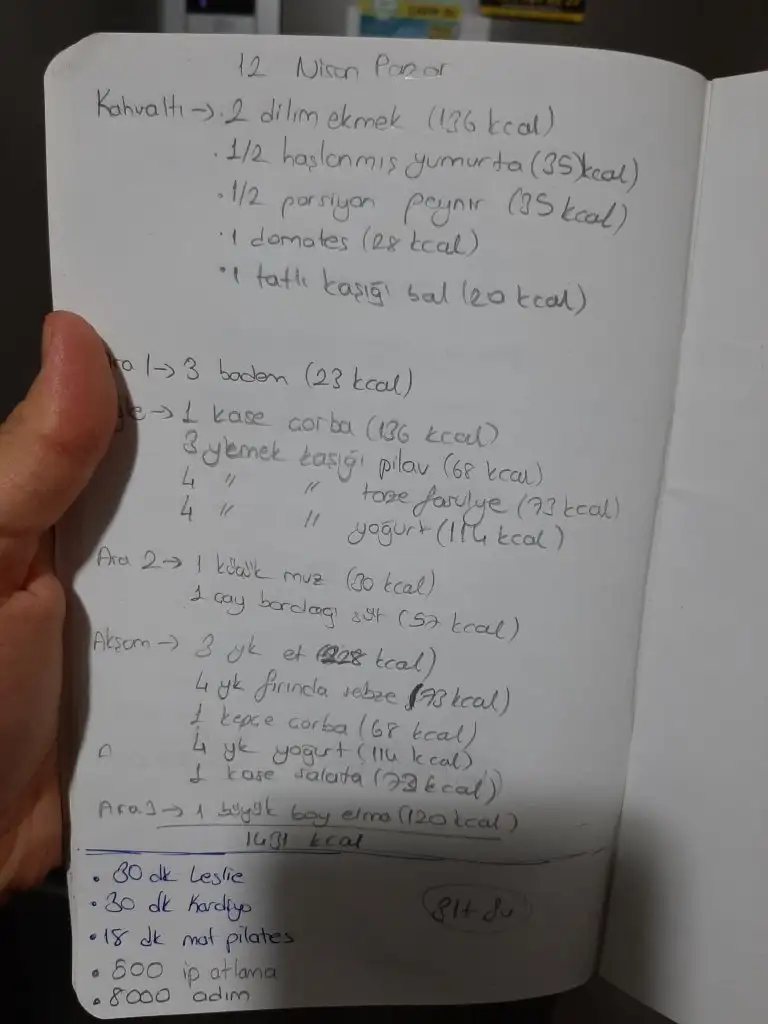 12 Nisan Pazar
Kahvaltı → . 2 dilim ekmek (136 kcal)
. 1/2 haşlanmış yumurta (35)kcal)
. 1/2 porsiyon peynir (35 kcal)
. 1 domates (28 kcal)
. 1 tatlı kaşığı bal (20 kcal)
ra 1 → 3 badem (23 kcal)
→ 1 kase çorba (136 kcal)
3 yemek kaşığı pilav (68 kcal)
4 " " taze fasulye (73 kcal)
4 " " yoğurt (114 kcal)
Ara 2 → 1 küçük muz (30 kcal)
1 çay bardağı süt (57 kcal)
Akşam → 3 yk et (228 kcal)
4 yk fırında sebze (73 kcal)
1 kepçe çorba (68 kcal)
4 yk yoğurt (114 kcal)
1 kase salata (73 kcal)
Ara 3 → 1 büyük boy elma (120 kcal)
1431 kcal
. 30 dk Leslie
. 30 dk Kardiyo
. 18 dk mat pilates
. 500 ip atlama
. 8000 adım